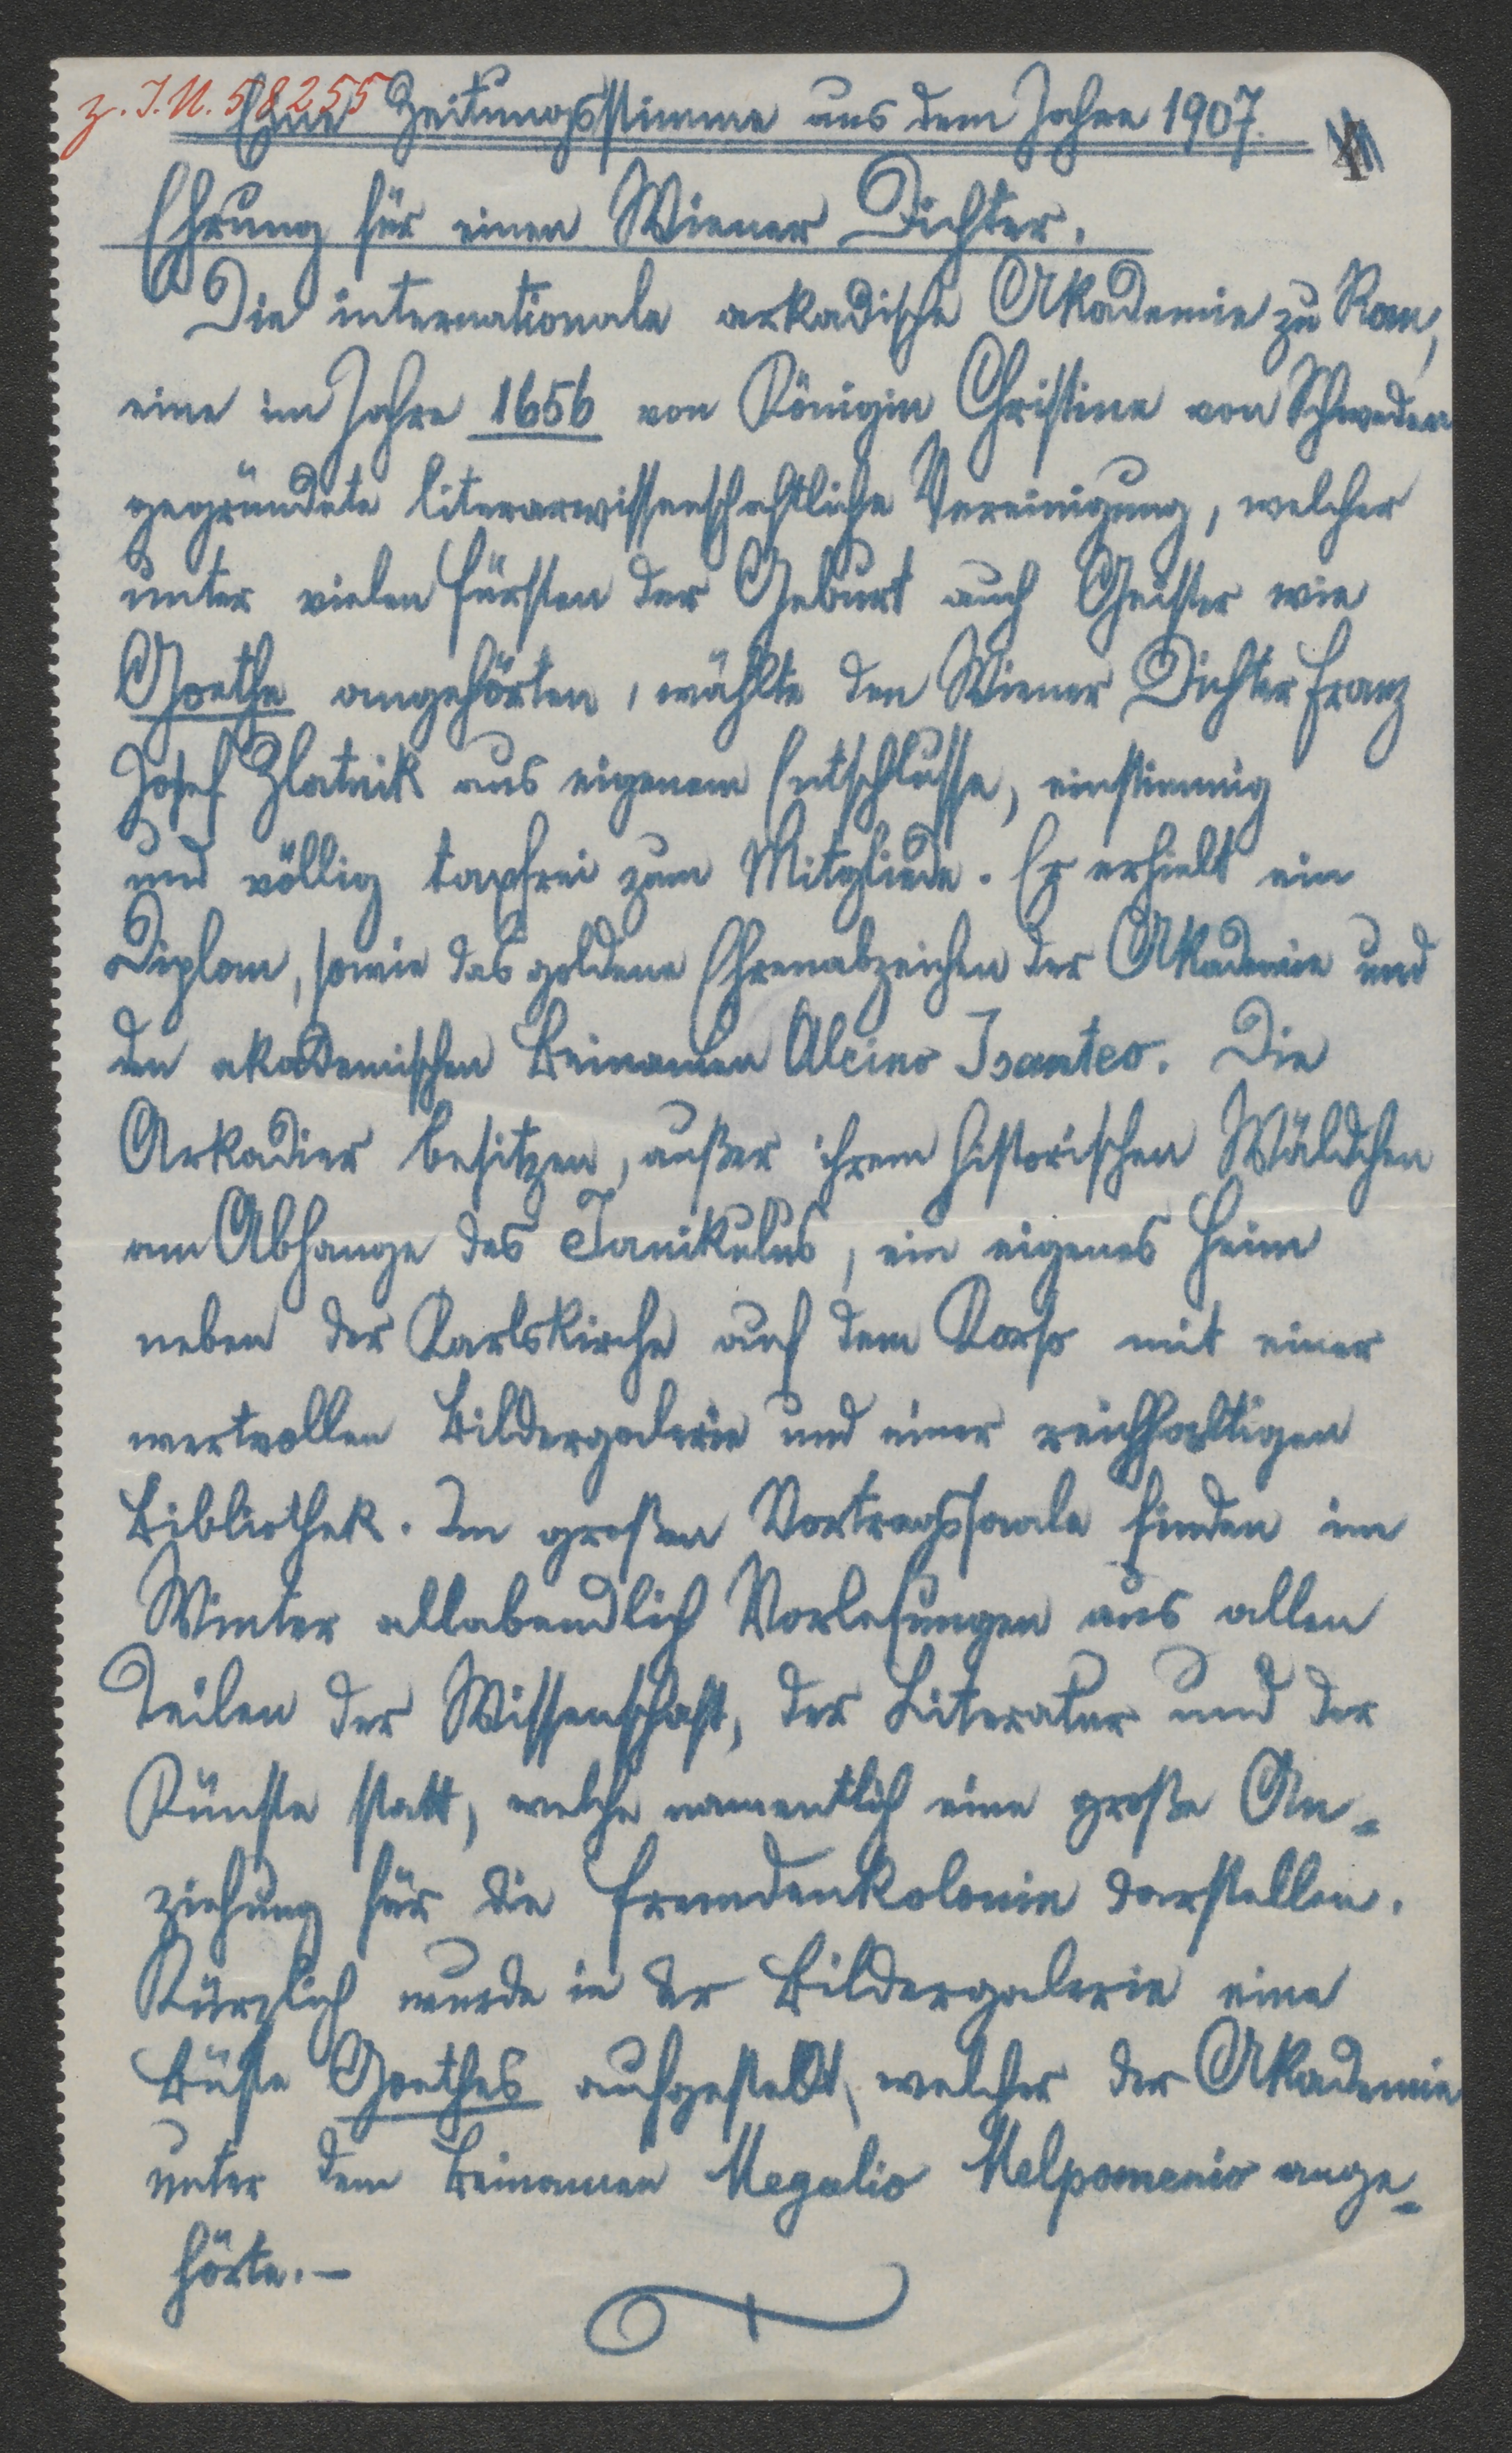 z. I. N. 58255
Eine Zeitungsstimme aus dem Jahre 1907.
Ehrung für einen Wiener Dichter.
Die internationale arkadische Akademie zu Rom,
eine im Jahre 1656 von Königin Christine von Schweden
gegründete literarwissenschaftliche Vereinigung, welcher
unter vielen Fürsten der Geburt auch Geister wie
Goethe angehörten, wählte den Wiener Dichter Franz
Josef Zlatnik aus eigenem Entschlusse, einstimmig
und völlig taxfrei zum Mitgliede. Er erhielt ein
Diplom, sowie das goldene Ehrenabzeichen der Akademie und
den akademischen Beinamen Alcino Isanteo. Die
Arkadier besitzen, außer ihrem historischen Wäldchen
am Abhange des Janikulus, ein eigenes Heim
neben der Karlskirche auf dem Korso mit einer
wertvollen Bildergalerie und einer reichhaltigen
Bibliothek. Im großen Vortragssaale finden im
Winter allabendlich Vorlesungen aus allen
Teilen der Wissenschaft, der Literatur und der
Künste statt, welche namentlich eine große An-
ziehung für die Fremdenkolonie darstellen.
Kürzlich wurde in der Bildergalerie eine
Büste Goethes aufgestellt, welcher der Akademie
unter dem Beinamen Megalio Melpomenio ange-
hörte.-